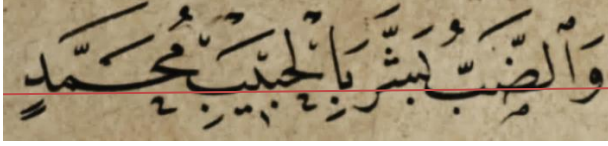 وَٱلضَّبُّ بَشَّرَ بِٱلْحَبِيبِ مُحَمَّدٍ